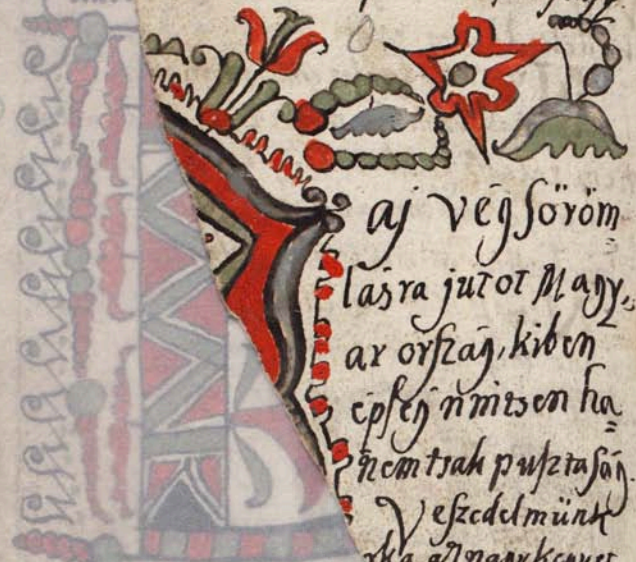 aj végsőröm
lásra jutot Magy=
ar orſzág, kiben
épſég nintsen ha=
nem tsak puſztaſág.
Veſzedelmünk